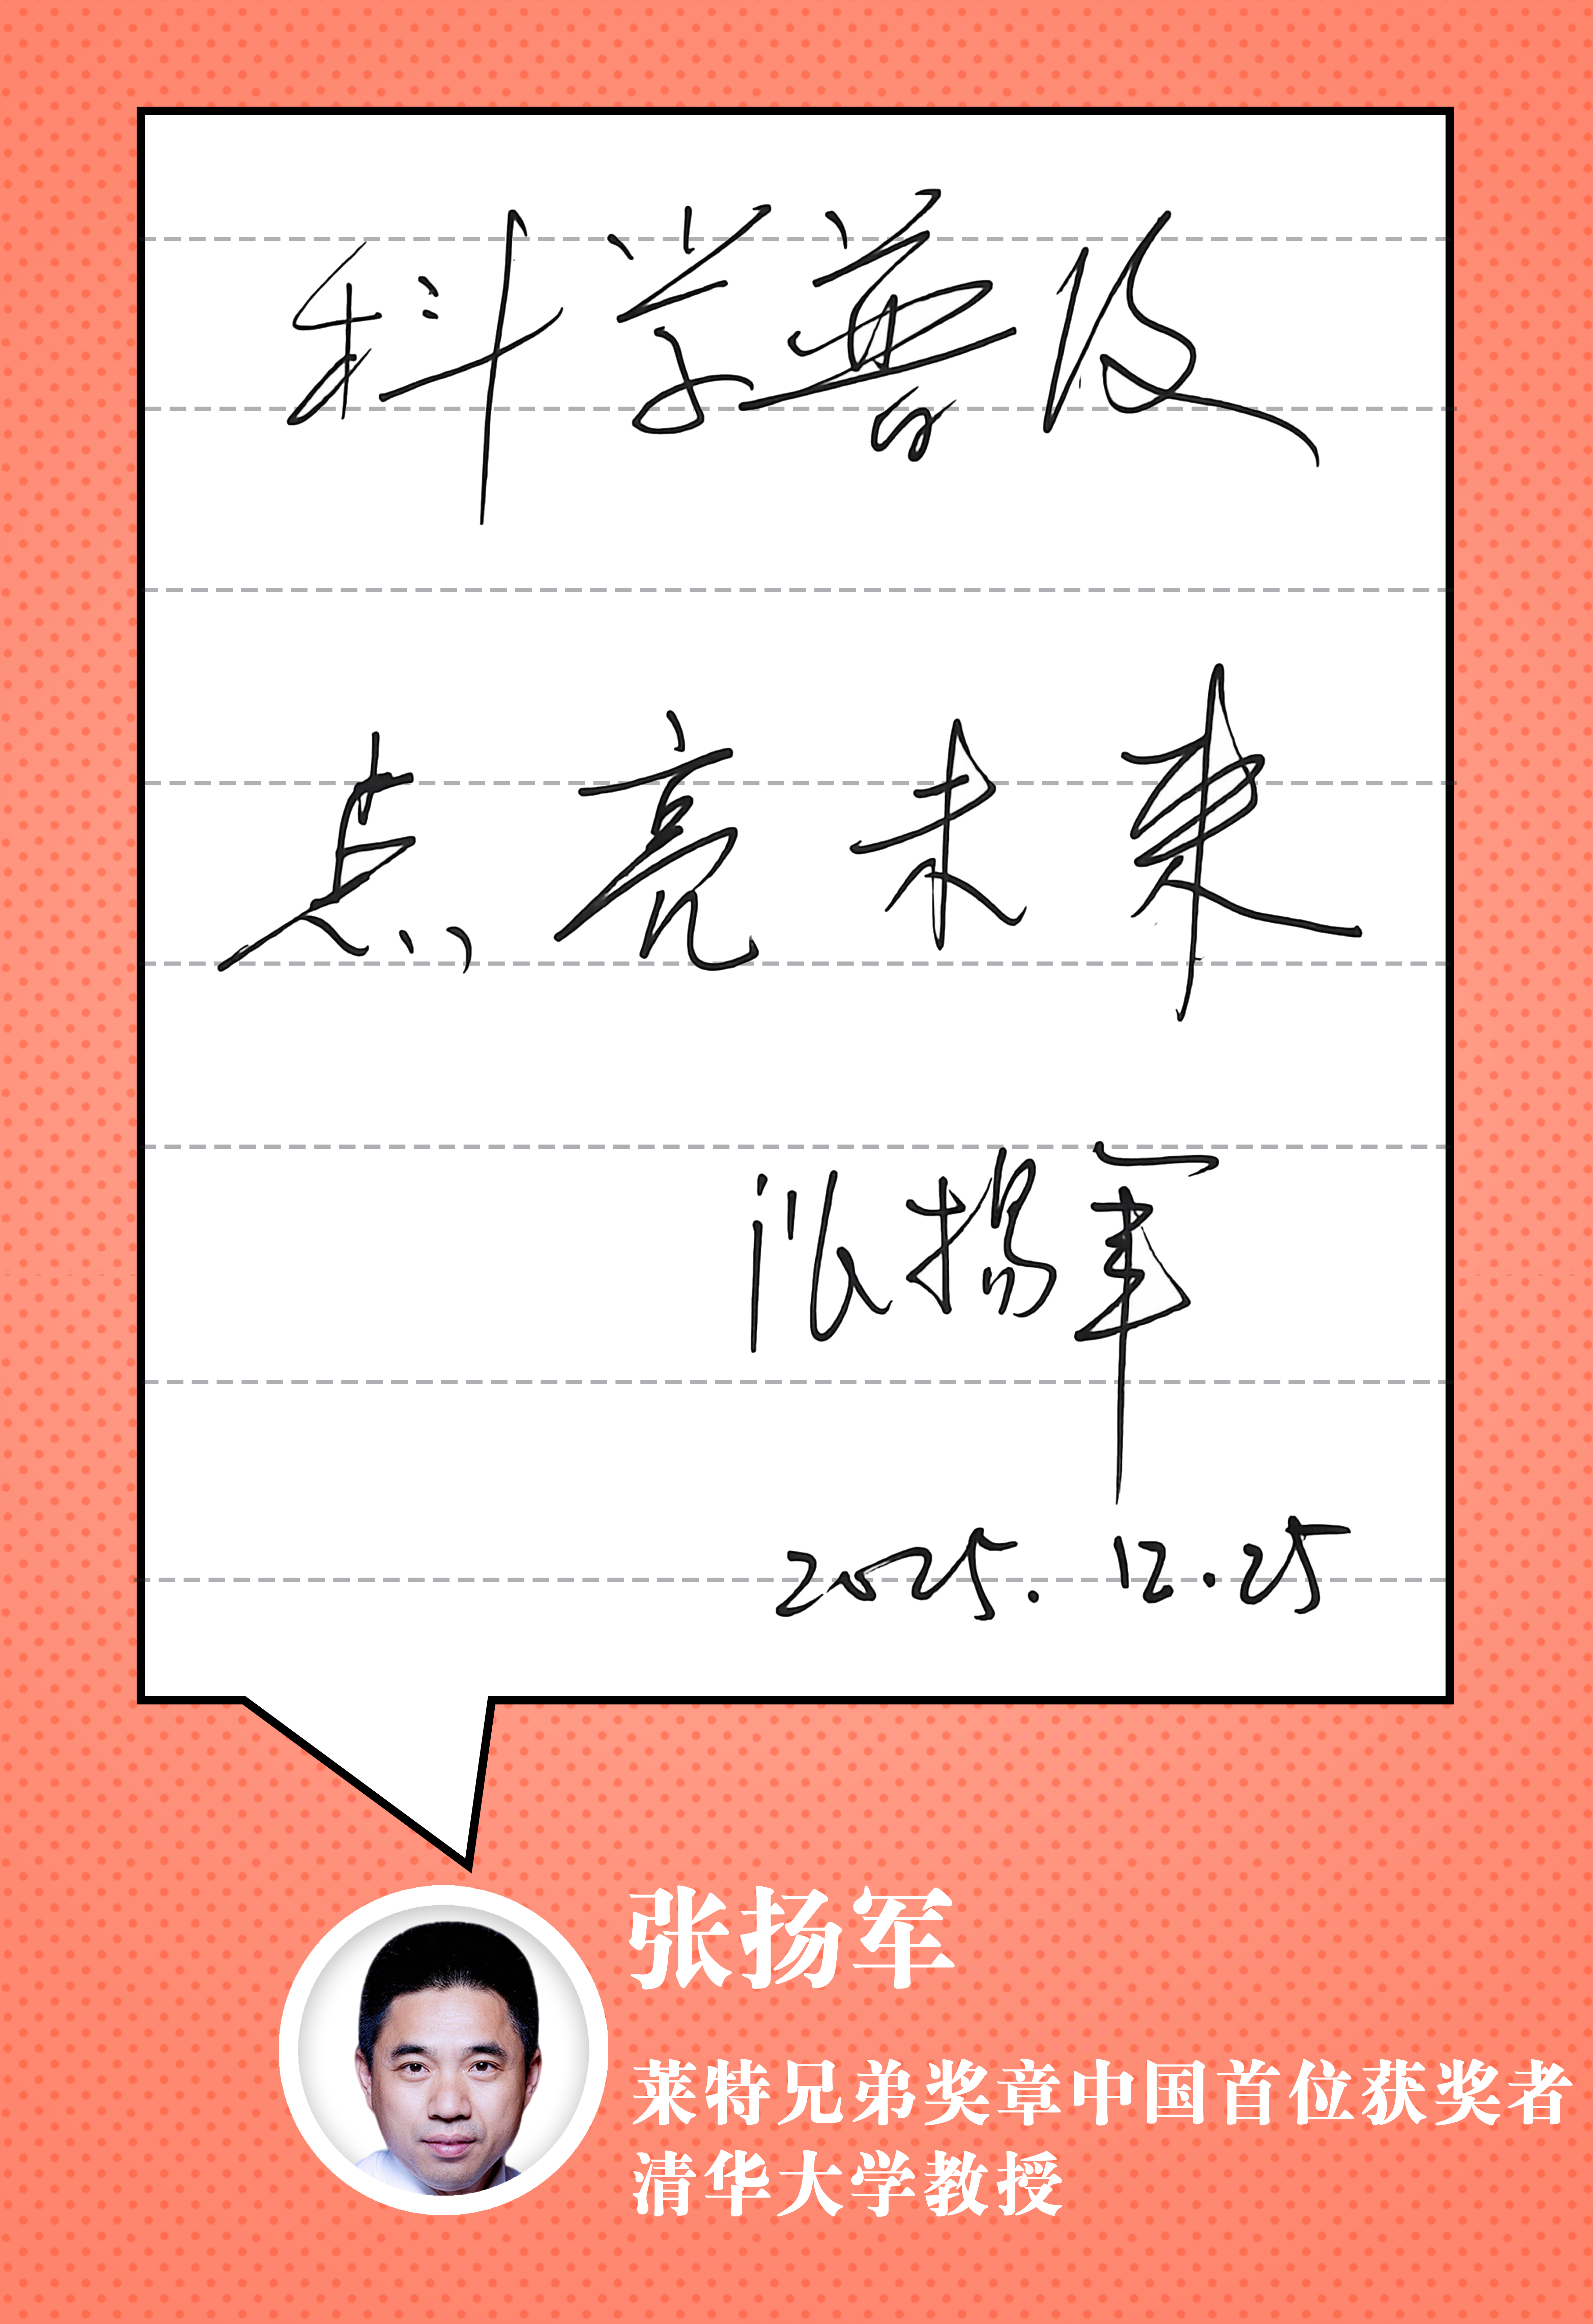 科学普及
点亮未来
张扬军
2025.12.25
张扬军
莱特兄弟奖章中国首位获奖者
清华大学教授